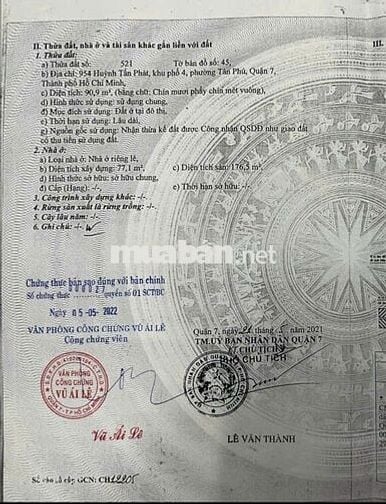 II. Thửa đất, nhà ở và tài sản khác gắn liền với đất
III.
1. Thửa đất:
a) Thửa đất số: 521 Tờ bản đồ số: 45,
b) Địa chỉ: 954 Huỳnh Tấn Phát, khu phố 4, phường Tân Phú, Quận 7,
Thành phố Hồ Chí Minh,
c) Diện tích: 90,9 m², (bằng chữ: Chín mươi phẩy chín mét vuông),
d) Hình thức sử dụng: sử dụng chung,
đ) Mục đích sử dụng: Đất ở tại đô thị,
e) Thời hạn sử dụng: Lâu dài,
g) Nguồn gốc sử dụng: Nhận thừa kế đất được Công nhận QSDĐ như giao đất
có thu tiền sử dụng đất.
2. Nhà ở:
a) Loại nhà ở: Nhà ở riêng lẻ,
b) Diện tích xây dựng: 77,1 m², c) Diện tích sàn: 176,5 m²,
d) Hình thức sở hữu: sở hữu chung,
đ) Cấp (Hạng): -/-, e) Thời hạn sở hữu: -/-.
3. Công trình xây dựng khác: -/-.
4. Rừng sản xuất là rừng trồng: -/-.
5. Cây lâu năm: -/-.
6. Ghi chú: -/-
muaban.net
Chứng thực bản sao đúng với bản chính
Số chứng thực quyển số 01 SCT/BC
Ngày 05-05-2022
VĂN PHÒNG CÔNG CHỨNG VŨ ÁI LÊ
Công chứng viên
VĂN PHÒNG
CÔNG CHỨNG
VŨ ÁI LÊ
Vũ Ái Lê
Quận 7, ngày tháng 5 năm 2021
TM.ỦY BAN NHÂN DÂN QUẬN 7
KT.CHỦ TỊCH
PHÓ CHỦ TỊCH
LÊ VĂN THÀNH
Số vào sổ cấp GCN: CH12205